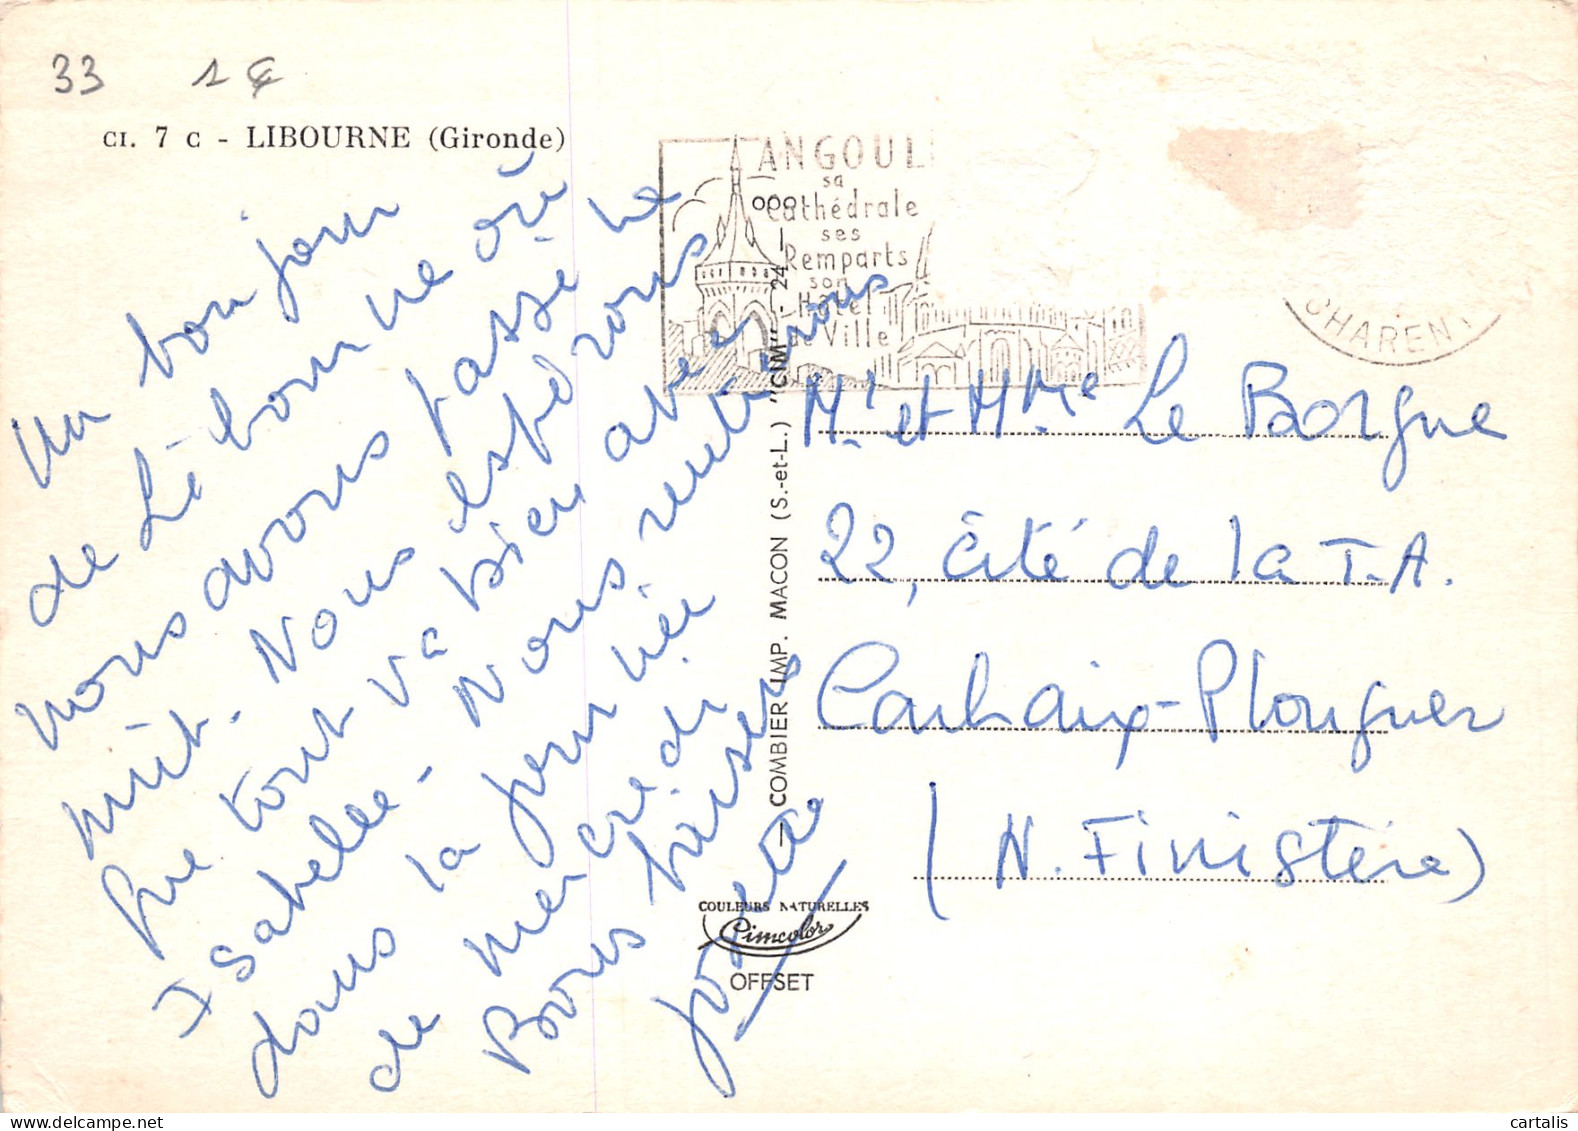 33 1 €
CI. 7 C - LIBOURNE (Gironde)
Un bonjour
de Libourne où
nous avons passé la
nuit. Nous espérons
que tout va bien avec
Isabelle - Nous rentrerons
dans la journée
de mercredi
Bons baisers
Josette
ANGOUL
sa
Cathédrale
ses
Remparts
son
Hôtel
de Ville
CHARENT
— COMBIER IMP. MACON (S.-et-L.) "CIM" - 24 —
Mr et Mme Le Borgne
22, cité de la T.A.
Carhaix-Plouguer
(N. Finistère)
COULEURS NATURELLES
Cimcolor
OFFSET
cartalis.delcampe.net
cartalis